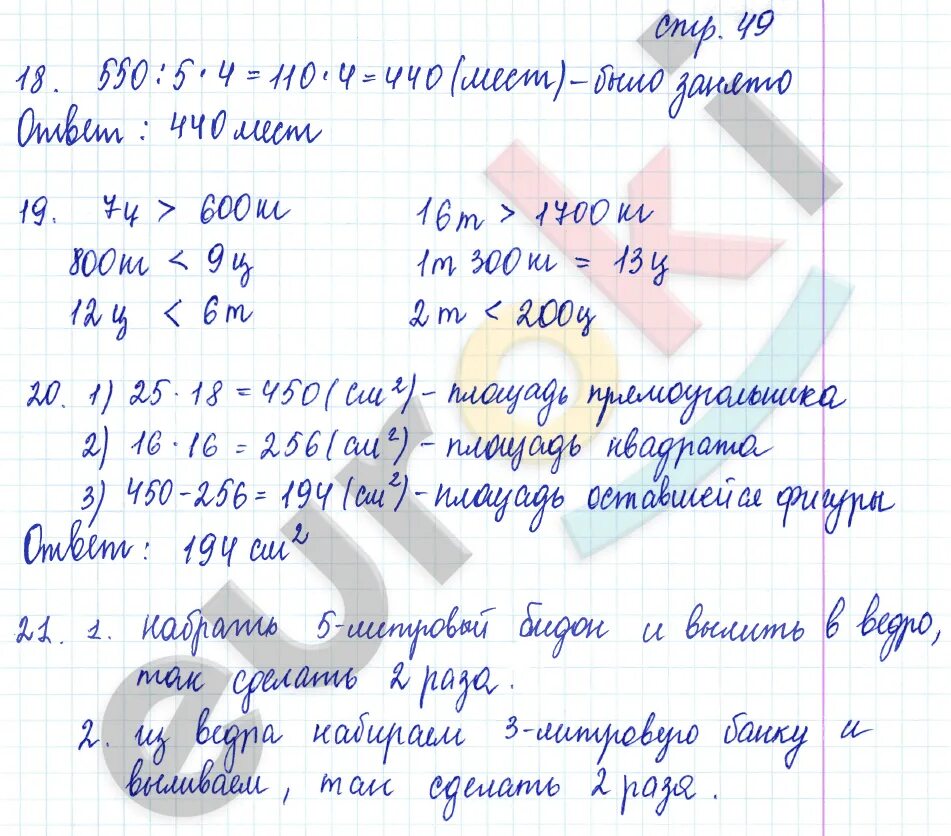 стр. 49
18. 550 : 5 · 4 = 110 · 4 = 440 (мест) – было занято
Ответ : 440 мест
19. 7ц > 600кг 16т > 1700кг
800кг < 9ц 1т 300кг = 13ц
12ц < 6т 2т < 200ц
20. 1) 25 · 18 = 450 (см²) – площадь прямоугольника
2) 16 · 16 = 256 (см²) – площадь квадрата
3) 450 – 256 = 194 (см²) – площадь оставшейся фигуры
Ответ : 194 см²
21. 1. набрать 5-литровый бидон и вылить в ведро,
так сделать 2 раза.
2. из ведра набираем 3-литровую банку и
выливаем, так сделать 2 раза.
euroki